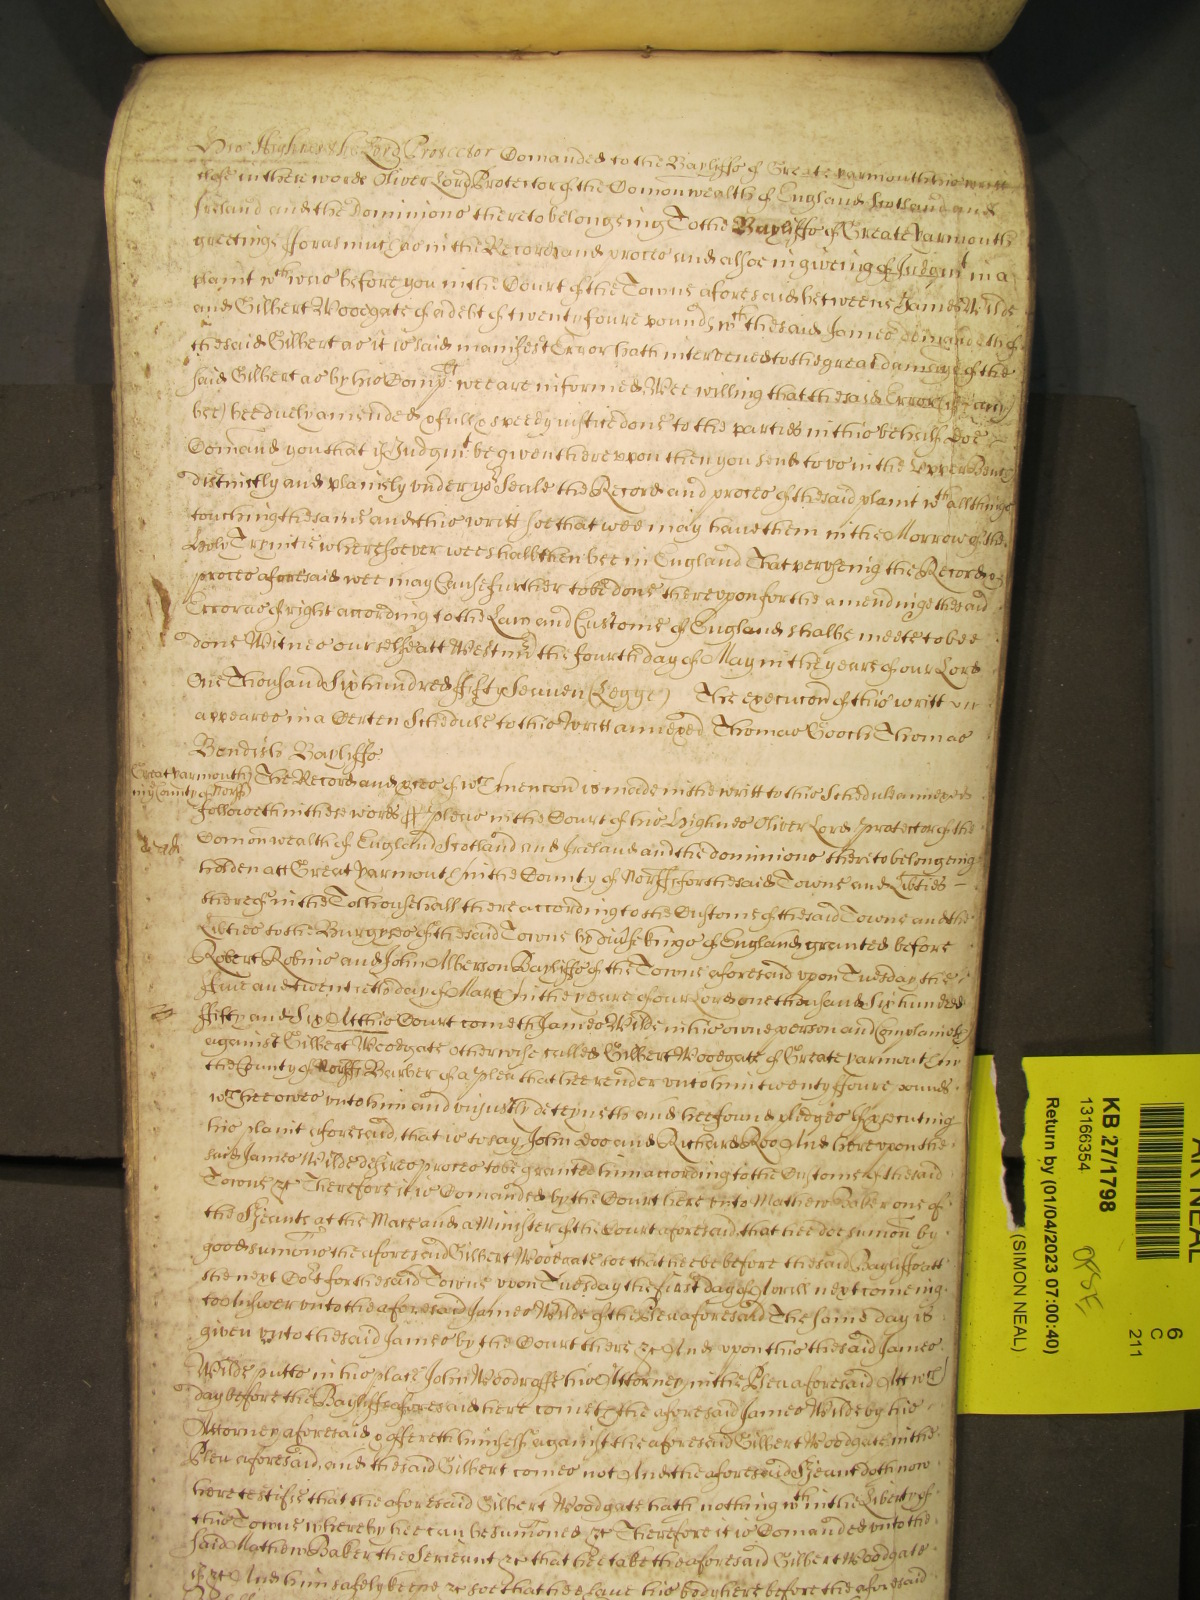 His Highnes the Lord Protector Comanded to the Bayliffs of Greate Yarmouth his writt
close in these words Oliver Lord Protector of the Comonwealth of England Scotland and
Ireland and the Dominions thereto belongeing To the Bayliffs of Greate Yarmouth
greeting fforasmuch as in the Record and proces and alsoe in giveing of Judgmt in a
plaint wth was before you in the Court of the Towne aforesaid betweene James Wilde
and Gilbert Woodgate of a debt of twenty foure pounds wth the said James demandeth of
the said Gilbert as it is said manifest Error hath intervened to the great damage of the
said Gilbert as by his Complt wee are informed Wee willing that the said Error (if any
bee) bee duely amended & full & speedy justice done to the parties in this behalfe Doe
Comand you that if Judgmt be given thereupon then you send to us in the Upper Bench
distinctly and plainely under yor Seale the Record and proces of the said plaint wth all things
touching the same and this writt soe that wee may have them in the Morrow of the
Holy Trinitie wheresoever wee shall then bee in England That peruseing the Record &
proces aforesaid wee may Cause further to be done thereupon for the amendinge the said
Error as of right according to the Law and Custome of England shalbe meete to bee
done Witnes ourselfe att Westmr the fourth day of May in the yeare of our Lord
One Thousand Six hundred fifty Seaven (Legge) The execucon of this writt
appeares in a Certen Schedule to this writt annexed Thomas Gooch Thomas
Bendish Bayliffs
Great Yarmouth
in ye County of Norff
The Record and proces of wch mencon is made in the writt to this Schedule annexed
followeth in these words ss Pleas in the Court of his Highnes Oliver Lord Protector of the
Comonwealth of England Scotland and Ireland and the dominions thereto belongeing
holden att Great Yarmouth in the County of Norff for the said Towne and Libties
thereof in the Tolhouse hall there according to the Custome of the said Towne and the
Libties to the Burgeses of the said Towne by divse kings of England granted before
Robert Robins and John Alberson Bayliffs of the Towne aforesaid upon Tuesday the
five and twentieth day of March in the yeare of our Lord one thousand Six hundred
ffifty and Six Att this Court cometh James Wilde in his owne person and Complaineth
against Gilbert Woodgate otherwise called Gilbert Woodgate of Greate Yarmouth in
the County of Norff Barber of a plea that hee render unto him twenty foure pounds
wch hee owes unto him and unjustly deteyneth and hee found pledges of psecuting
his plaint aforesaid, that is to say, John Doo and Richard Roo And hereupon the
said James Wilde desires proces to be granted him according to the Custome of the said
Towne &c Therefore it is Comanded by the Court here unto Mathew Baker one of
the Sjeants at the Mace and a Minister of the Court aforesaid that hee doe sumon by
good sumons the aforesaid Gilbert Woodgate soe that hee be before the said Bayliffs att
the next Cort for the said Towne upon Tuesday the first day of Aprill next comeing
to Answer unto the aforesaid James Wilde of the Plea aforesaid The same day is
given unto the said James by the Court there &c And upon this the said James
Wilde putts in his place John Woodroffe his Attorney in the Plea aforesaid Att wch
day before the Bayliffs aforesaid here cometh the aforesaid James Wilde by his
Attorney aforesaid & offereth himselfe against the aforesaid Gilbert Woodgate in the
Plea aforesaid, and the said Gilbert comes not And the aforesaid Sjeant doth now
here testifie that the aforesaid Gilbert Woodgate hath nothing wth in the Liberty of
this Towne whereby hee can be sumoned &c Therefore it is Comanded unto the
said Mathew Baker the Serieant &c that hee take the aforesaid Gilbert Woodgate
if &c And him safely keepe &c soe that hee have his body here before the aforesaid
KB 27/1798
13166354
Return by (01/04/2023 07:00:40)
(SIMON NEAL)
6
C
211